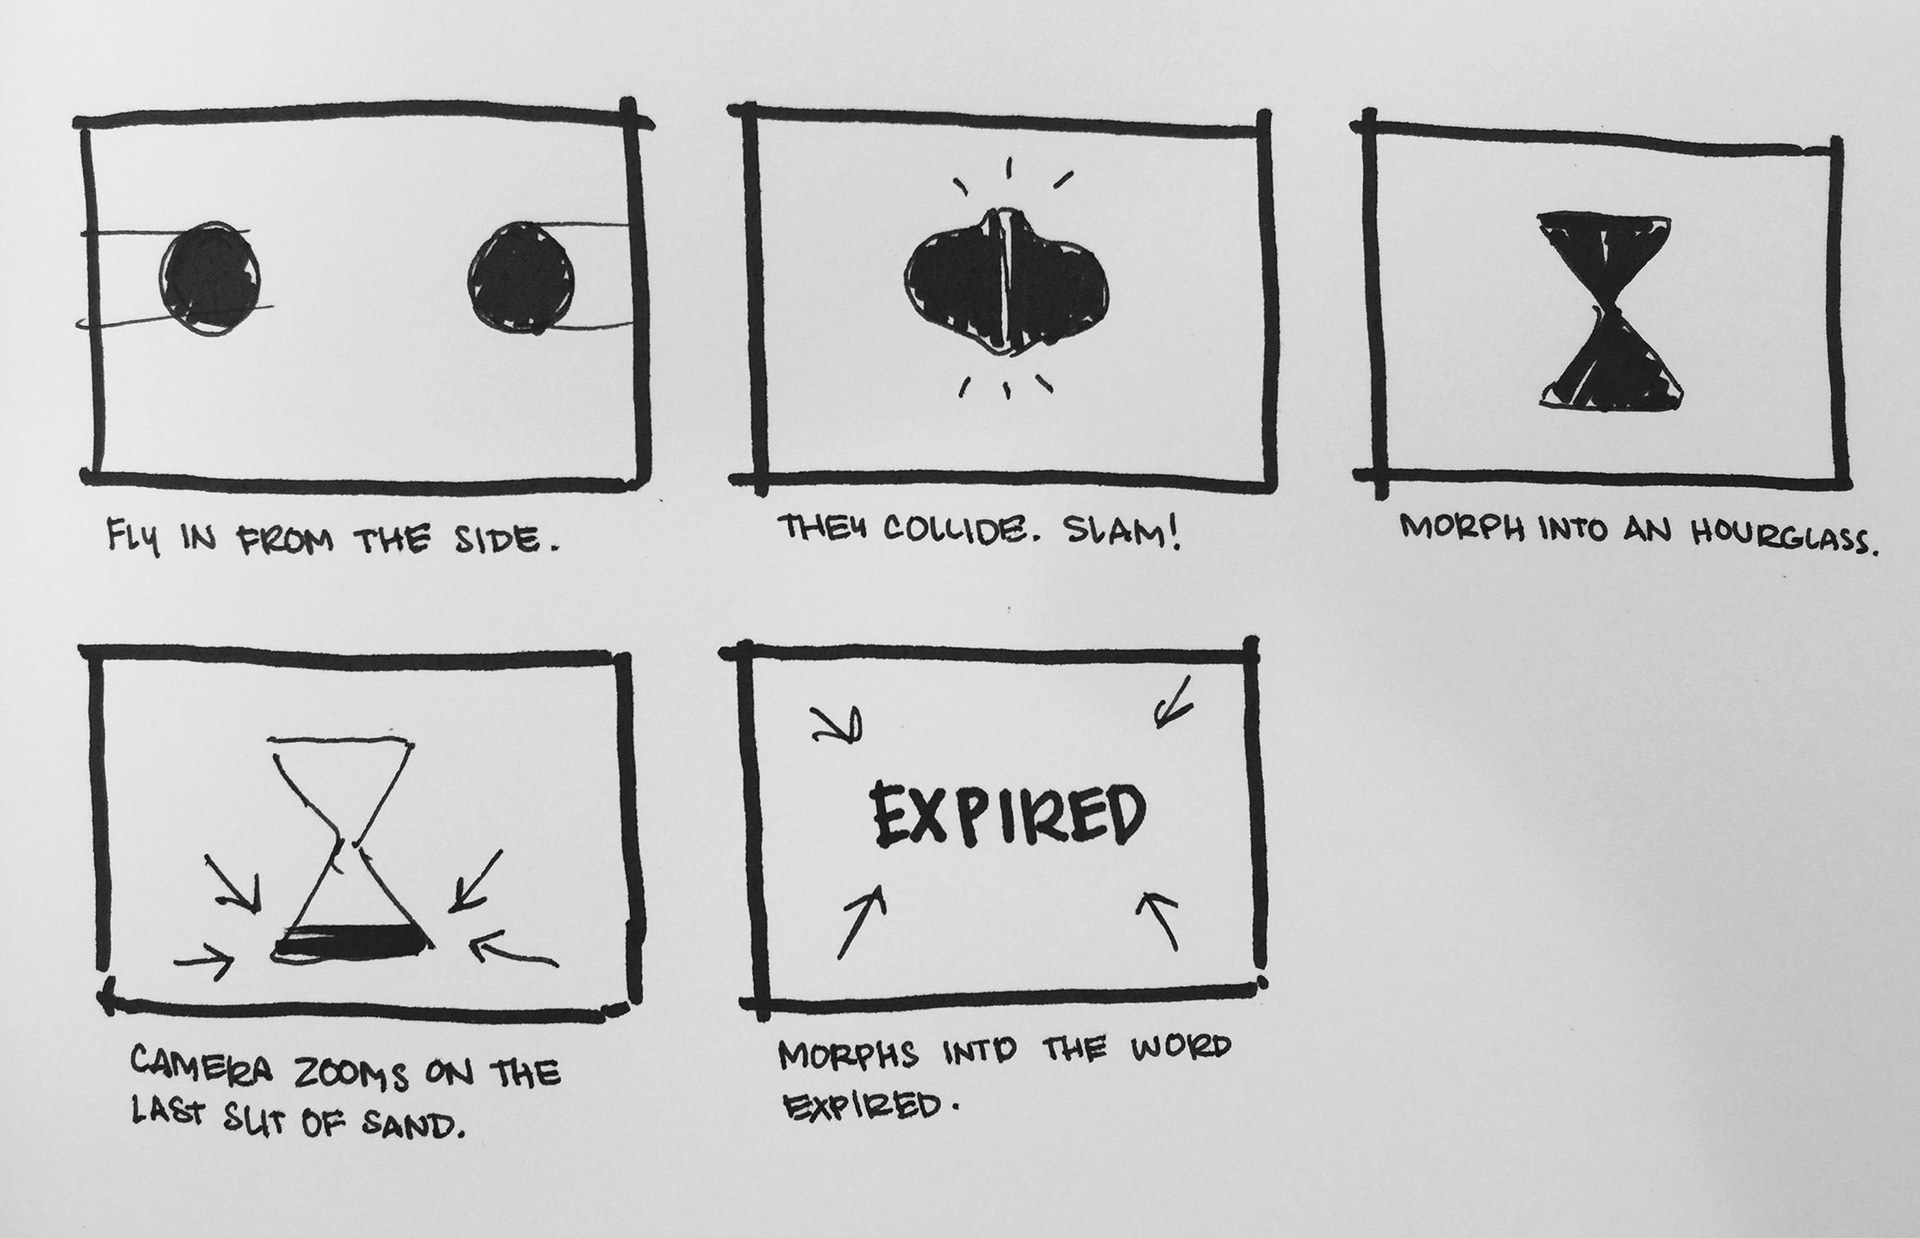 FLY IN FROM THE SIDE.
THEY COLLIDE. SLAM!
MORPH INTO AN HOURGLASS.
CAMERA ZOOMS ON THE
LAST SLIT OF SAND.
EXPIRED
MORPHS INTO THE WORD
EXPIRED.